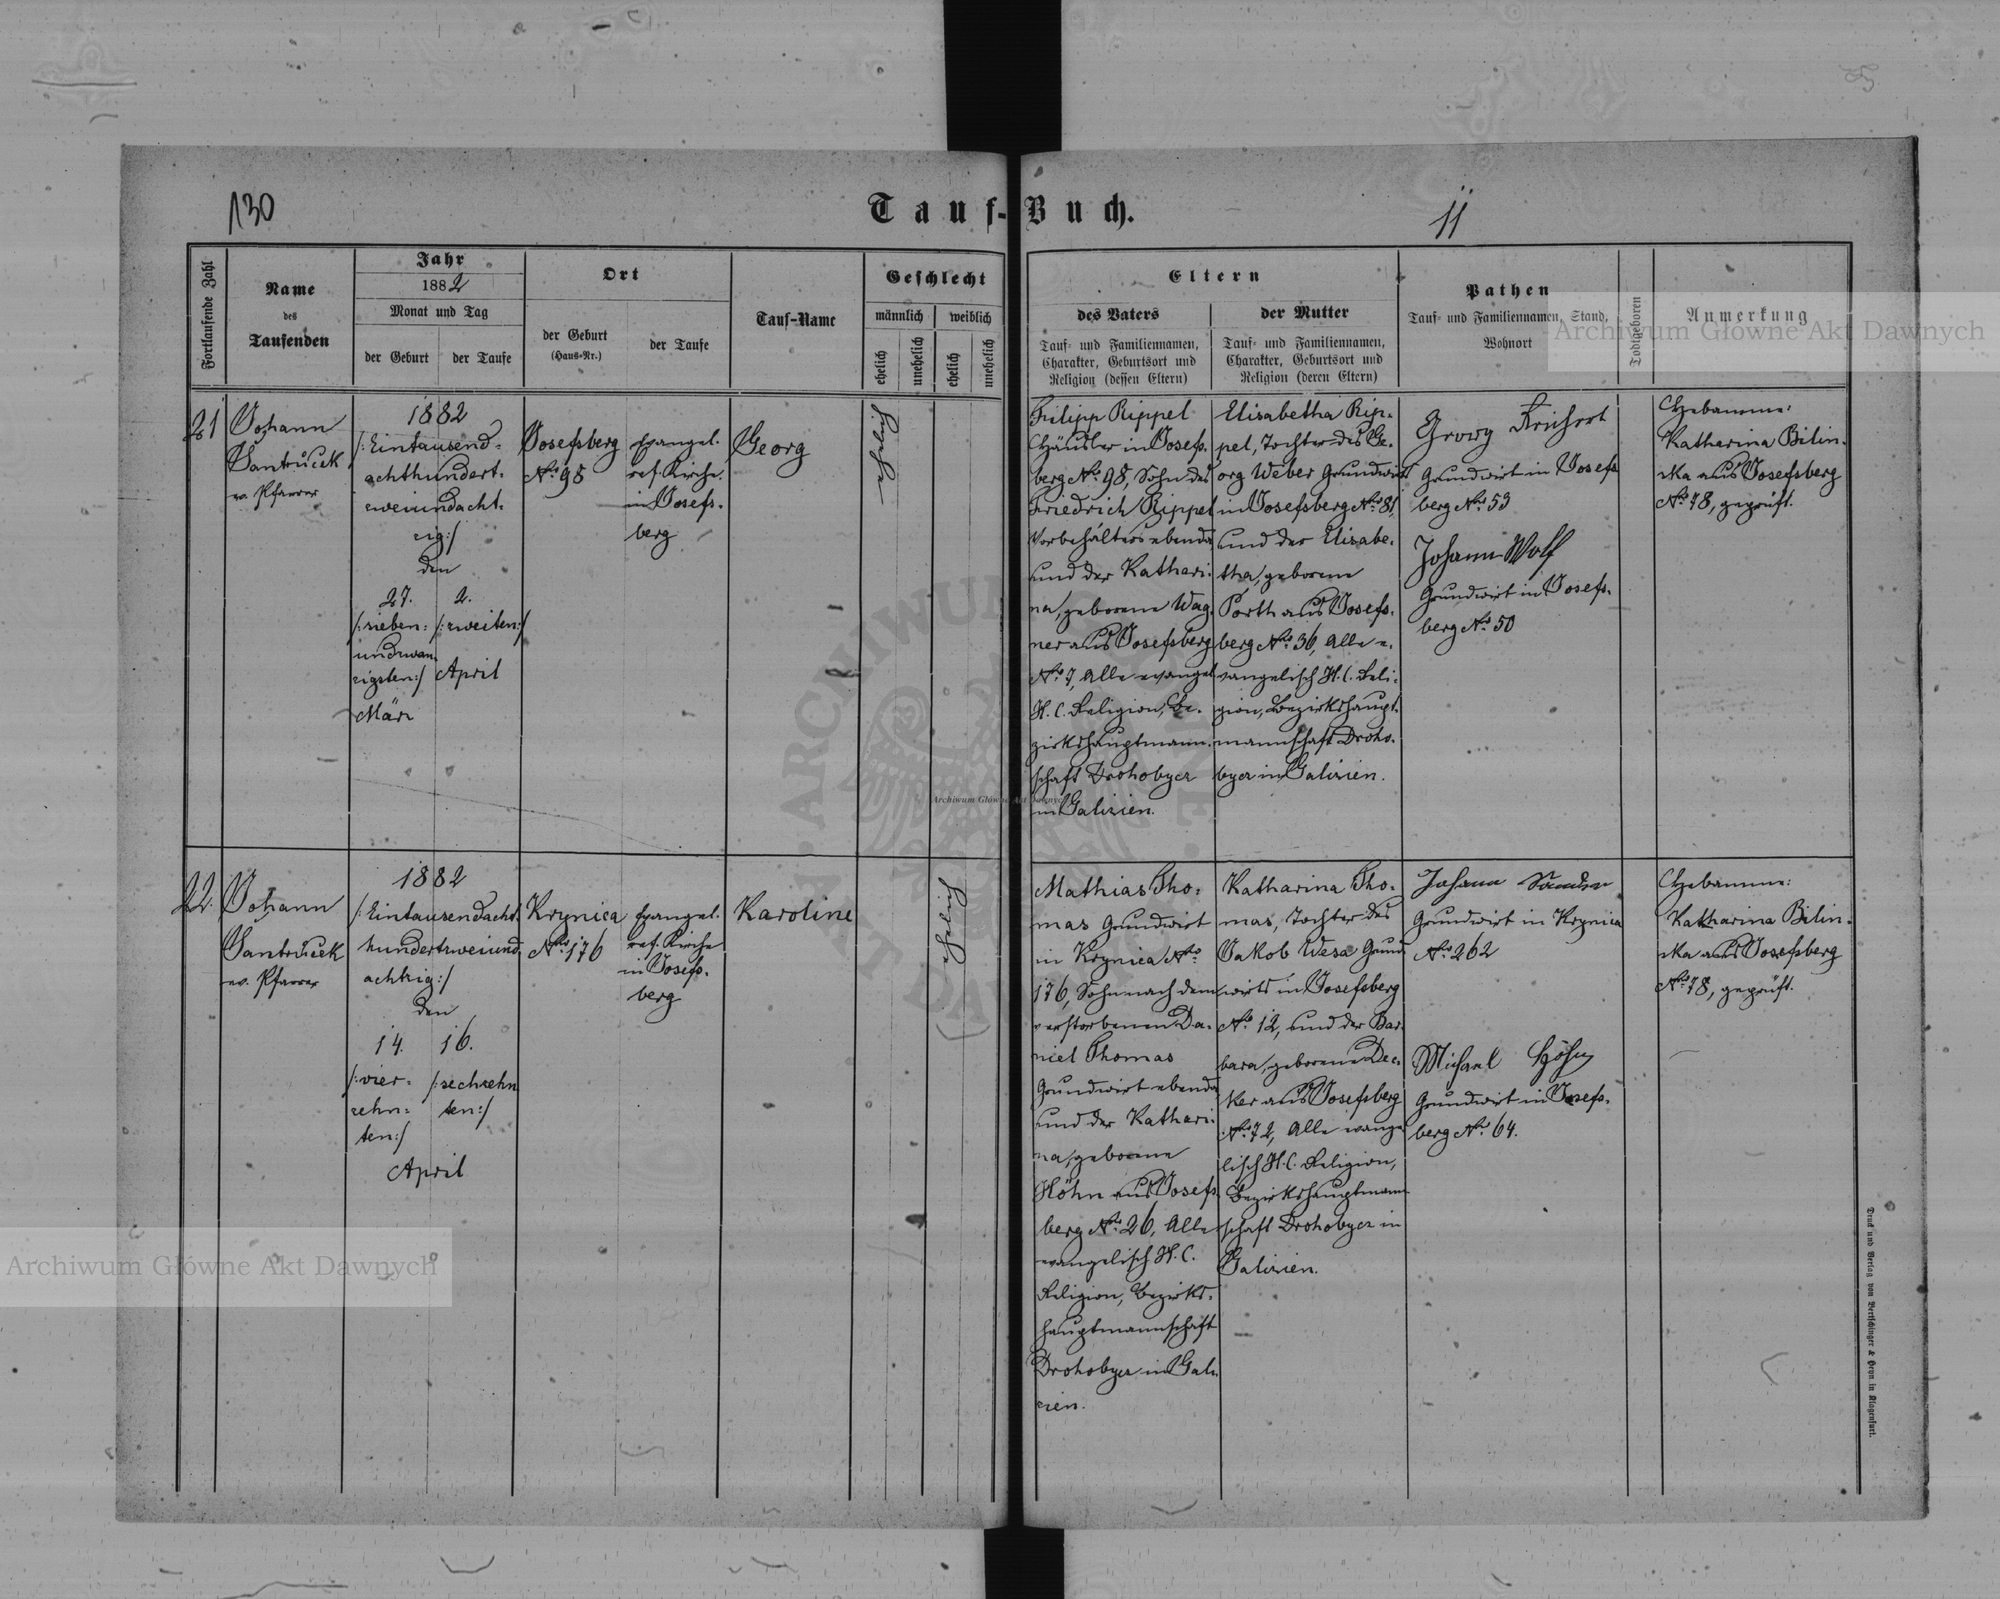 130
Tauf-Buch.
11
Fortlaufende Zahl
Name
des
Taufenden
Jahr
1882
Monat und Tag
der Geburt
der Taufe
Ort
der Geburt
(Haus-Nr.)
der Taufe
Tauf-Name
Geschlecht
männlich
weiblich
ehelich
unehelich
ehelich
unehelich
Eltern
des Vaters
Tauf- und Familiennamen,
Charakter, Geburtsort und
Religion (dessen Eltern)
der Mutter
Tauf- und Familiennamen,
Charakter, Geburtsort und
Religion (deren Eltern)
Pathen
Tauf- und Familiennamen, Stand,
Wohnort
Todtgeboren
Anmerkung
Archiwum Główne Akt Dawnych
21
Johann
Jantrucek
ev. Pfarrer
1882
/:Eintausend-
achthundert-
zweiundacht-
zig:/
den
27.
/:sieben-
undzwan-
zigsten:/
März
2.
/:zweiten:/
April
Josefsberg
No 98
Evangel.
ref. Kirche
in Josefs-
berg
Georg
ehelich
Filipp Rippel
Häusler in Josefs-
berg No 98, Sohn des
Friedrich Rippel
Vorbehälters ebenda
und der Kathari-
na, geborene Wag-
ner aus Josefsberg
No 7, Alle evangel.
H. C. Religion, Be-
zirkshauptmann-
schaft Drohobycz
in Galizien.
Elisabetha Rip-
pel, Tochter des Ge-
org Weber Grundwirts
in Josefsberg No 81,
und der Elisabe-
tha, geborene
Porth aus Josefs-
berg No 36, Alle e-
vangelisch H. C. Reli-
gion, Bezirkshaupt-
mannschaft Droho-
bycz in Galizien.
Georg Reichert
Grundwirt in Josefs-
berg No 53
Johann Wolf
Grundwirt in Josefs-
berg No 50
Hebamme:
Katharina Bilin-
ska aus Josefsberg
No 78, geprüft.
Archiwum Główne Akt Dawnych
22.
Johann
Jantrucek
ev. Pfarrer
1882
/:Eintausendacht-
hundertzweiund-
achtzig:/
den
14.
/:vier-
zehn-
ten:/
16.
/:sechzehn-
ten:/
April
Krynica
No 176
Evangel.
ref. Kirche
in Josefs-
berg
Karoline
ehelich
Mathias Tho-
mas Grundwirt
in Krynica No
176, Sohn nach dem
verstorbenen Da-
niel Thomas
Grundwirt ebenda
und der Kathari-
na, geborene
Höhn aus Josefs-
berg No 26, Alle
evangelisch H. C.
Religion, Bezirks-
hauptmannschaft
Drohobycz in Gali-
zien.
Katharina Tho-
mas, Tochter des
Jakob Wesa Grund-
wirts in Josefsberg
No 12, und der Bar-
bara, geborene Dec-
ker aus Josefsberg
No 72, Alle evange-
lisch H. C. Religion,
Bezirkshauptmann-
schaft Drohobycz in
Galizien.
Johann
Grundwirt in Krynica
No 262
Michael Höhn
Grundwirt in Josefs-
berg No 64.
Hebamme:
Katharina Bilin-
ska aus Josefsberg
No 78, geprüft.
Archiwum Główne Akt Dawnych
Druck und Verlag von Bertschinger & Heyn in Klagenfurt.